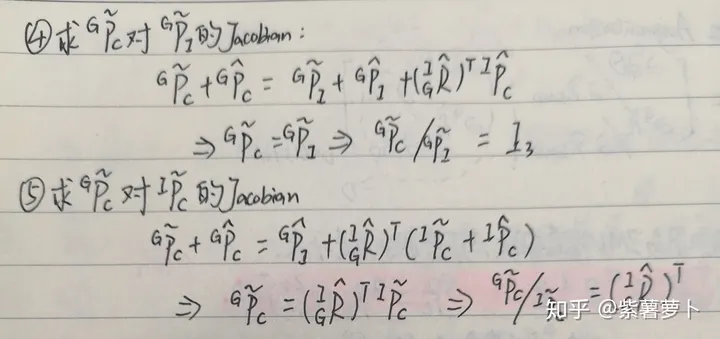 ④求 ᴳP̃_C 对 ᴳP̃_I 的Jacobian:
ᴳP̃_C + ᴳP̂_C = ᴳP̃_I + ᴳP̂_I + (ᴵ_G R̂)ᵀ ᴵP̂_C
⇒ ᴳP̃_C = ᴳP̃_I ⇒ ᴳP̃_C / ᴳP̃_I = I₃
⑤求 ᴳP̃_C 对 ᴵP̃_C 的Jacobian
ᴳP̃_C + ᴳP̂_C = ᴳP̂_I + (ᴵ_G R̂)ᵀ (ᴵP̃_C + ᴵP̂_C)
⇒ ᴳP̃_C = (ᴵ_G R̂)ᵀ ᴵP̃_C ⇒ ᴳP̃_C / ᴵP̃_C = (ᴵ_G R̂)ᵀ
知乎 @紫薯萝卜